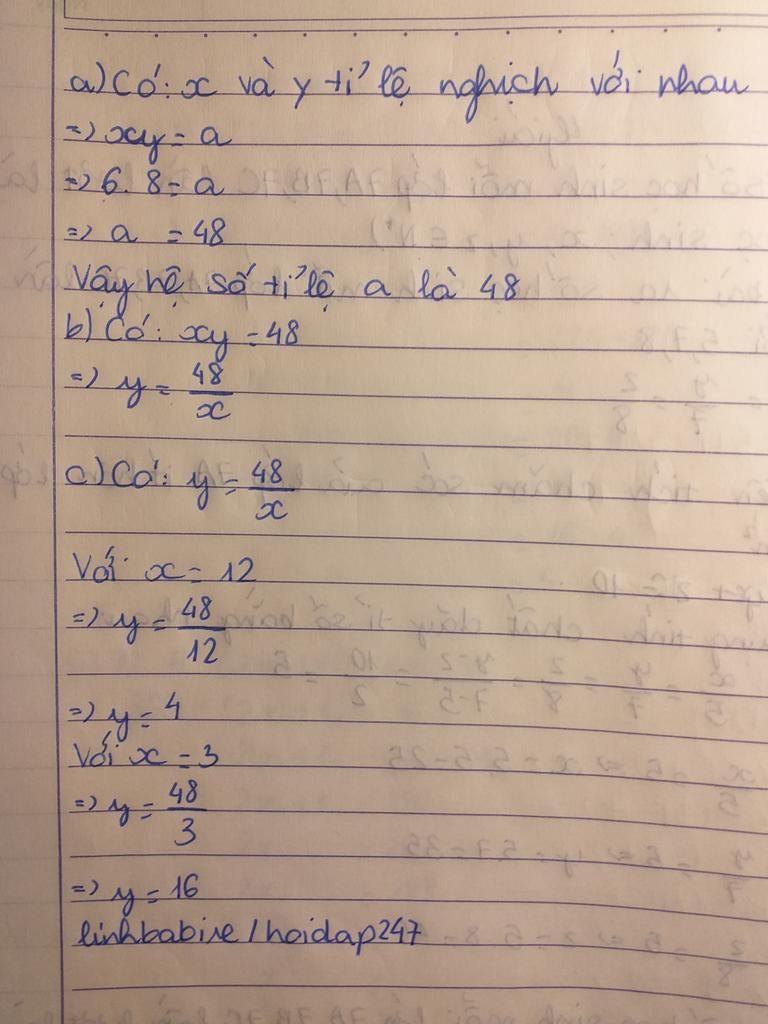 a) Có: x và y tỉ lệ nghịch với nhau
=> xy = a
=> 6. 8 = a
=> a = 48
Vậy hệ số tỉ lệ a là 48
b) Có: xy = 48
=> y = 48/x
c) Có: y = 48/x
Với x = 12
=> y = 48/12
=> y = 4
Với x = 3
=> y = 48/3
=> y = 16
linhbabie/hoidap247